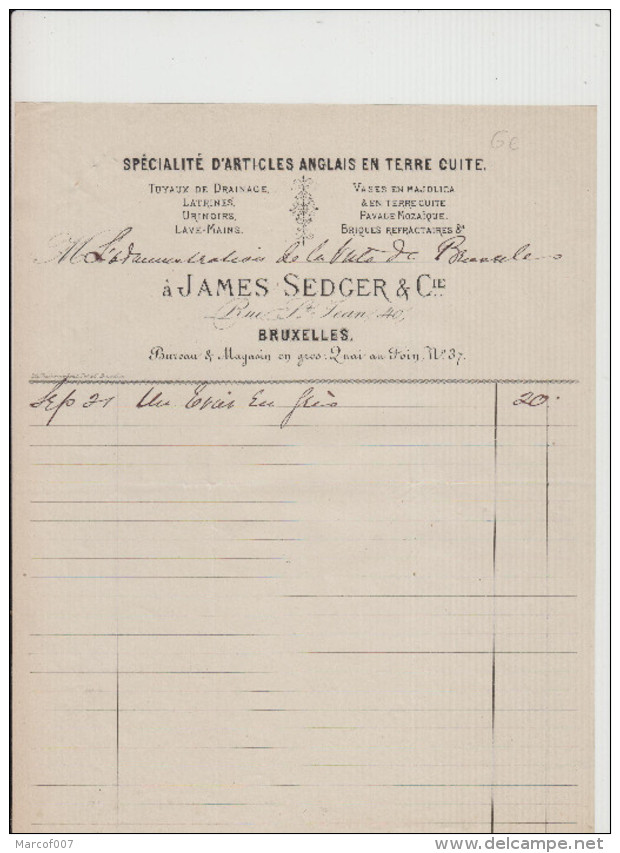 6€
SPÉCIALITÉ D'ARTICLES ANGLAIS EN TERRE CUITE.
TUYAUX DE DRAINAGE, VASES EN MAJOLICA
LATRINES, & EN TERRE CUITE
URINOIRS, PAVAGE MOZAÏQUE,
LAVE-MAINS. BRIQUES REFRACTAIRES &ª
M L'administration de la de Bruxelles
à JAMES SEDGER & CIE
Rue St Jean, 40,
BRUXELLES.
Bureau & Magasin en gros: Quai au Foin, No 37.
Sep 21 Un Evier En grès 20
Marcof007
delcampe.net